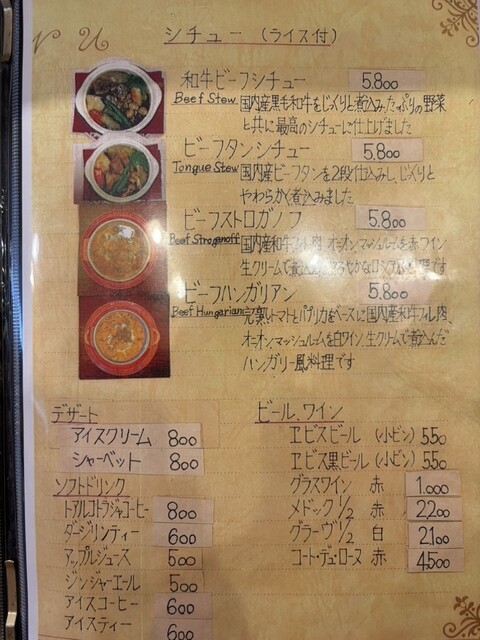 シチュー (ライス付)
和牛ビーフシチュー 5.800
Beef Stew 国内産黒毛和牛をじっくりと煮込みたっぷりの野菜
と共に最高のシチューに仕上げました
ビーフタンシチュー 5.800
Tongue Stew 国内産ビーフタンを2段仕込みし、じっくりと
やわらかく煮込みました
ビーフストロガノフ 5.800
Beef Stroganoff 国内産和牛フィレ肉、オニオン、マッシュルームを赤ワイン
生クリームで煮込んだ
ビーフハンガリアン 5.800
Beef Hungarian 完熟トマトとパプリカをベースに国内産和牛フィレ肉、
オニオン、マッシュルームを白ワイン、生クリームで煮込んだ
ハンガリー風料理です
デザート
アイスクリーム 800
シャーベット 800
ソフトドリンク
トアルコトラジャコーヒー 800
ダージリンティー 600
アップルジュース 500
ジンジャーエール 500
アイスコーヒー 600
アイスティー 600
ビール、ワイン
ヱビスビール (小ビン) 550
ヱビス黒ビール (小ビン) 550
グラスワイン 赤 1.000
メドック 1/2 赤 2.200
グラーヴ 1/2 白 2.100
コート・デュ・ローヌ 赤 4.500